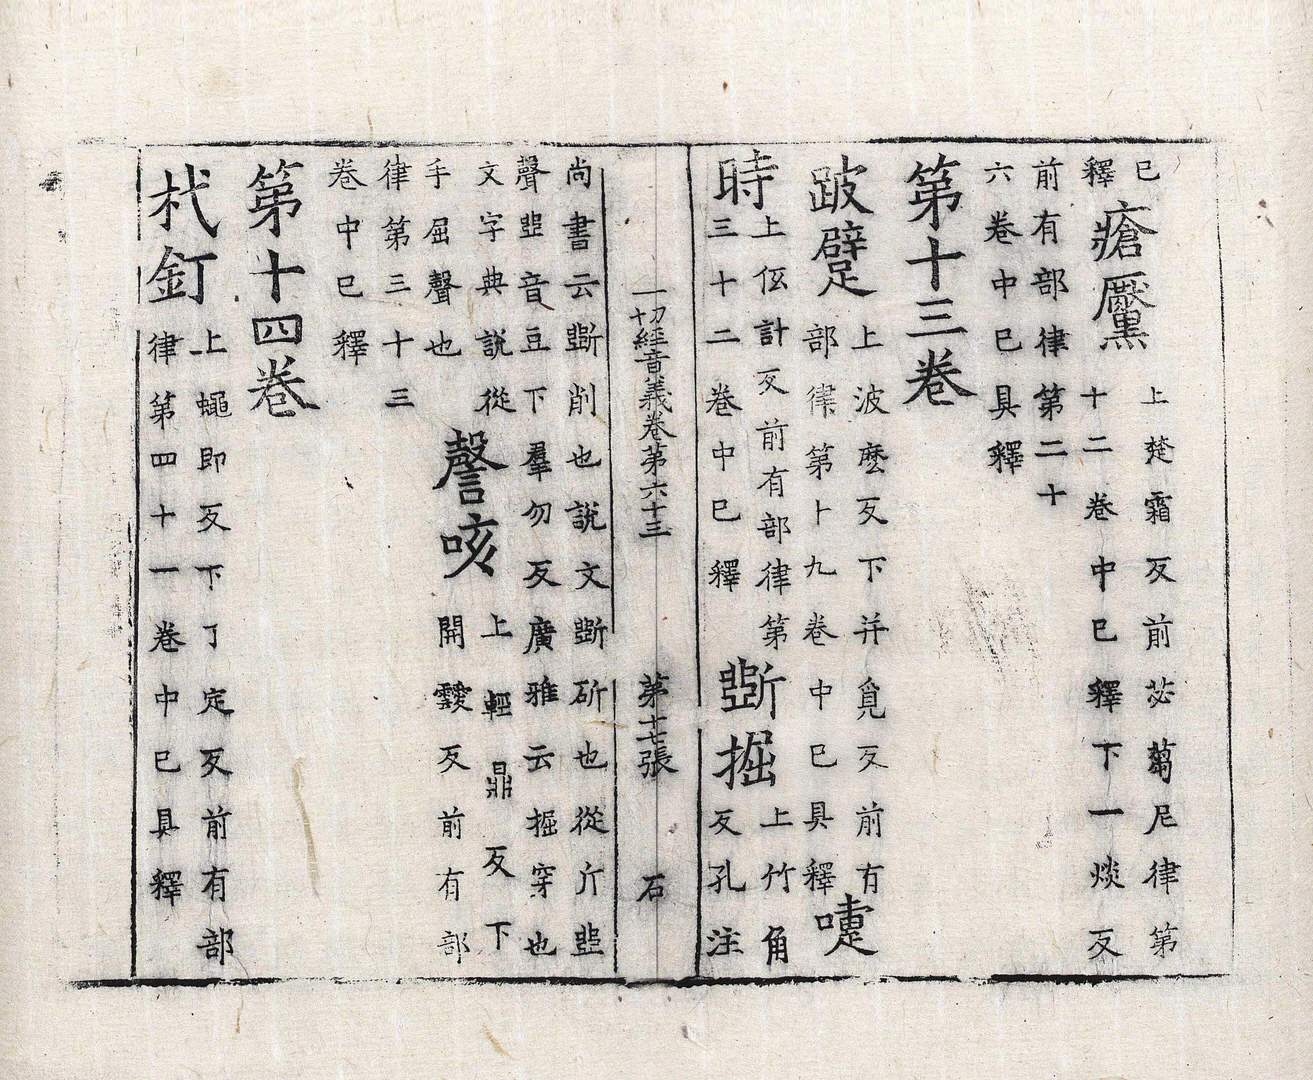 已
釋
瘡黶
上楚霜反前苾蒭尼律第
十二卷中已釋下一琰反
前有部律第二十
六卷中已具釋
第十三卷
跛躄
上波麼反下并覓反前有
部律第十九卷中已具釋
嚏
時
上伭計反前有部律第
三十二卷中已釋
斲掘
上竹角
反孔注
一切經音義卷第六十三 第十七張 石
尚書云斲削也說文斲斫也從斤㔁
聲㔁音豆下羣勿反廣雅云掘穿也
文字典說從
手屈聲也
謦咳
上輕鼎反下
開反前有部
律第三十三
卷中已釋
第十四卷
杙釘
上蠅即反下丁定反前有部
律第四十一卷中已具釋